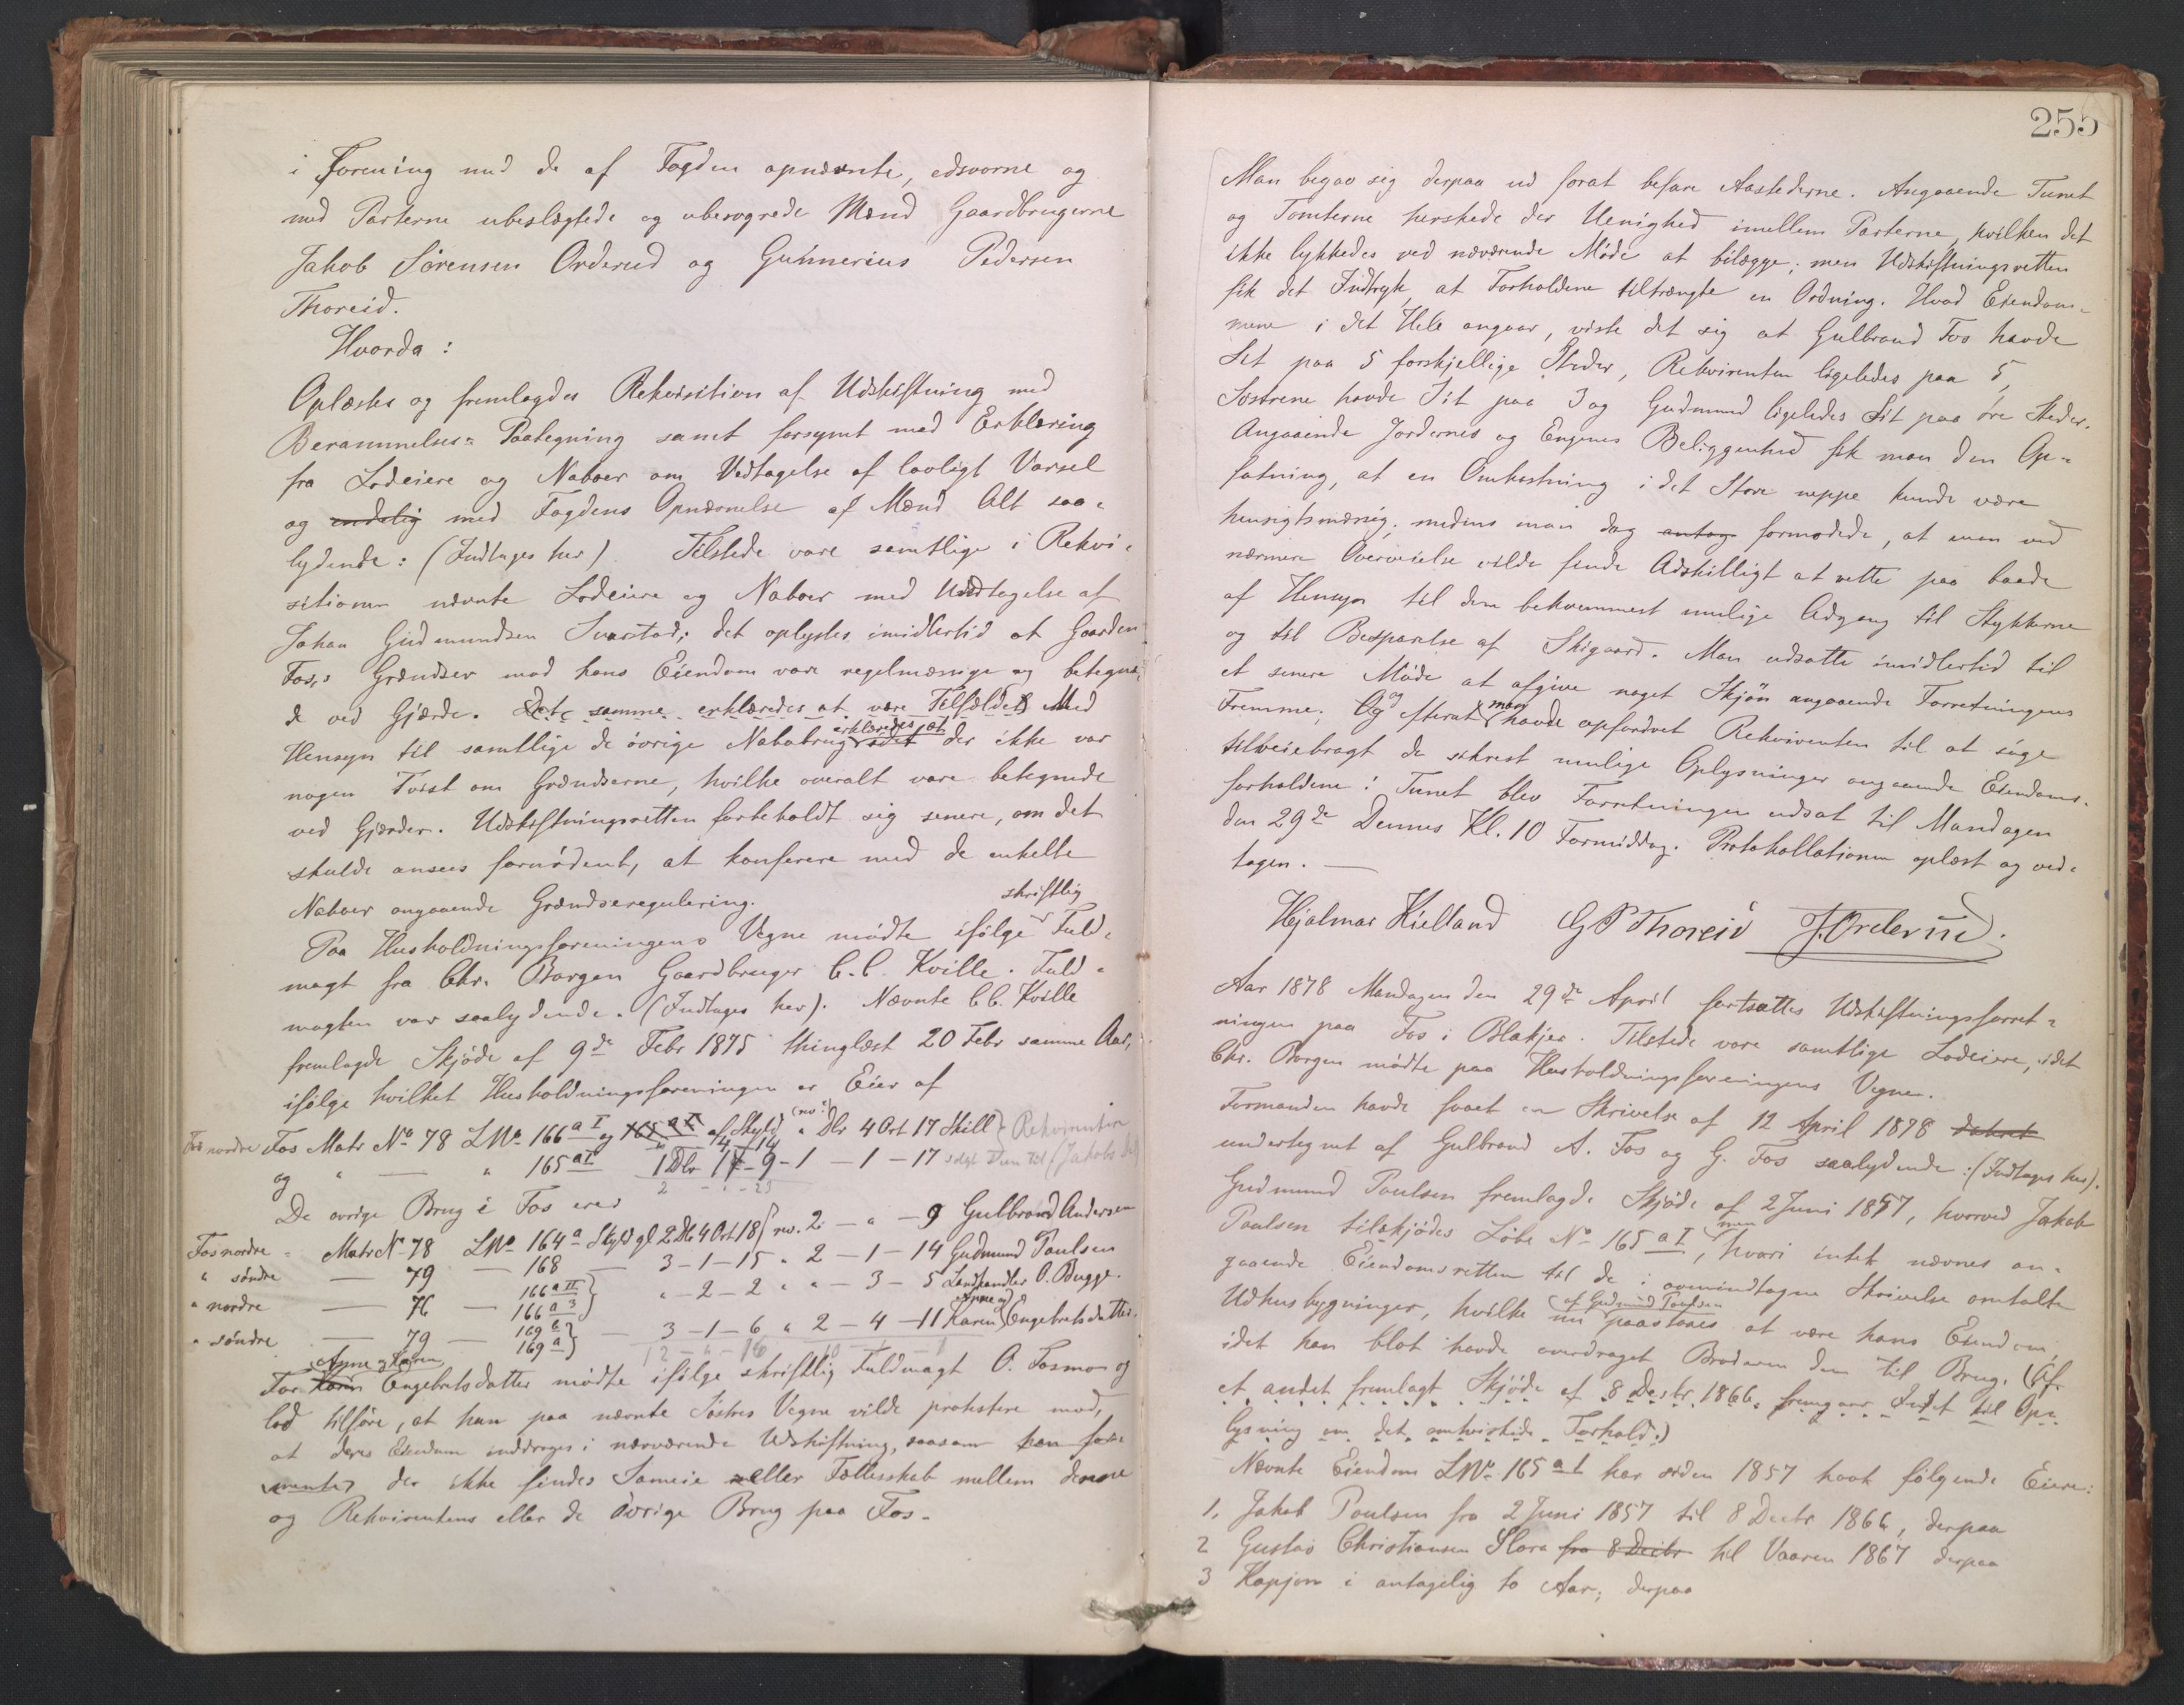 i Forening med de af Fogden opnævnte, edsvorne og
med Parterne ubeslægtede og uberygtede Mænd Gaardbrugerne
Jakob Sørensen Orderud og Gunnerius Pedersen
Thoreid.
Hvorda:
Oplæstes og fremlagdes Rekvisition af Udskiftning med
Berammelses-Paategning samt forsynet med Erklæring
fra Lodeiere og Naboer om Vedtagelse af lovligt Varsel
og endelig med Fogdens Opnævnelse af Mænd Alt saa-
lydende: (Indtages her) Tilstede vare samtlige i Rekvi-
sitionen nævnte Lodeiere og Naboer med Undtagelse af
Johan Gudmundsen Svarstad; det oplystes imidlertid at Gaarden
Fos,s Grændser mod hans Eiendom vare regelmæssige og betegne-
de ved Gjærde. Det samme erklæredes at være Tilfældet Med
Hensyn til samtlige de øvrige Nabobrug erklæredes, at der ikke var
nogen Tvist om Grændserne, hvilke overalt vare betegnede
ved Gjærder. Udskiftningsretten forbeholdt sig senere, om det
skulde ansees fornødent, at konferere med de enkelte
Naboer angaaende Grændseregulering.
Paa Husholdningsforeningens Vegne mødte ifølge skriftlig Fuld-
magt fra Chr. Borgen Gaardbruger C. C. Kville. Fuld-
magten var saalydende. (Indtages her). Nævnte C C. Kville
fremlagde Skjøde af 9de Febr 1875 thinglæst 20 Febr samme Aar,
ifølge hvilket Husholdningsforeningen er Eier af
Fos nordre Fos Matr No 78 LNo 166 a I og 165 a I af Skyld (rev:) " Dlr 4 Ort 17 Skill Rekvirenten
og " — " 165 a I 1 Dlr 1 - 9 - 1 - 1 - 17 solgt Dem til Jakob
De øvrige Brug i Fos ere:
Fos nordre - Matr No 78 LNo 164 a Skyld gl 2 Dl 4 Ort 18 rev. 2 - " - 9 Gulbrand Andersen
" søndre — 79 — 168 — 3 - 1 - 15 " 2 - 1 - 14 Gudmund Poulsen
" nordre — 76 — 166 a II 166 a 3 " - 2 - 2 " " - 3 - 5 Landhandler O. Bugge.
" søndre — 79 — 169 b 169 a — 3 - 1 - 6 " 2 - 4 - 11 Anne og Karen Engebretsdatter.
For Karen Anne og Karen Engebretsdatter mødte ifølge skriftlig Fuldmagt O. Fosmo og
lod tilføre, at han paa nævnte Søstres Vegne vilde protestere mod,
at deres Eiendom inddroges i nærværende Udskiftning, saasom han for-
mente, der ikke findes Sameie eller Fællesskab mellem denne
og Rekvirentens eller de øvrige Brug paa Fos.
255
Man begav sig derpaa ud forat befare Aastederne. Angaaende Tunet
og Tomterne herskede der Uenighed imellem Parterne, hvilken det
ikke lykkedes ved nærværende Møde at bilægge; men Udskiftningsretten
fik det Indtryk, at Forholdene tiltrængte en Ordning. Hvad Eiendom-
mene i det Hele angaar, viste det sig at Gulbrand Fos havde
Sit paa 5 forskjellige Steder, Rekvirenten ligeledes paa 5,
Søstrene havde Sit paa 3 og Gudmund ligeledes Sit paa tre Steder.
Angaaende Jordernes og Engenes Beliggenhed fik man den Op-
fatning, at en Omkastning i det Store neppe kunde være
hensigtsmæssig; medens man dog antog formodede, at man ved
nærmere Overveielse vilde finde Adskilligt at rette paa baade
af Hensyn til den bekvemmest mulige Adgang til Stykkerne
og til Besparelse af Skigaard. Man udsatte imidlertid til
et senere Møde at afgive noget Skjøn angaaende Forretningens
Fremme; Og og efterat man havde opfordret Rekvirenten til at søge
tilveiebragt de sikrest mulige Oplysninger angaaende Eiendoms-
forholdene i Tunet blev Forretningen udsat til Mandagen
den 29de Dennes Kl. 10 Formiddag. Protokollationen oplæst og ved-
tagen. —
Hjalmar Kielland G P Thoreid J. Orderud.
Aar 1878 Mandagen den 29de April fortsattes Udskiftningsforret-
ningen paa Fos i Blakjer. Tilstede vare samtlige Lodeiere, idet
Chr. Borgen mødte paa Husholdningsforeningens Vegne.
Formanden havde faaet en Skrivelse af 12 April 1878 dateret
undertegnet af Gulbrand A. Fos og G. Fos saalydende: (Indtages her).
Gudmund Poulsen fremlagde Skjøde af 2 Juni 1857, hvorved Jakob
Poulsen tilskjødes Løbe No 165 a I, men hvori intet nævnes an-
gaaende Eiendomsretten til de i ovenindtagne Skrivelse omtalte
Udhusbygninger, hvilke nu af Gudmund Poulsen paastaaes at være hans Eiendom,
idet han blot havde overdraget Broderen dem til Brug. (Af
et andet fremlagt Skjøde af 8 Decbr. 1866, fremgaar Intet til Op-
lysning om det omtvistede Forhold.)
Nævnte Eiendom LNo 165 a I har siden 1857 havt følgende Eiere:
1. Jakob Poulsen fra 2 Juni 1857 til 8 Decbr 1866, derpaa
2 Gustav Christiansen Slora fra 8 Decbr til Vaaren 1867 derpaa
3 Kopjon i antagelig to Aar, derpaa